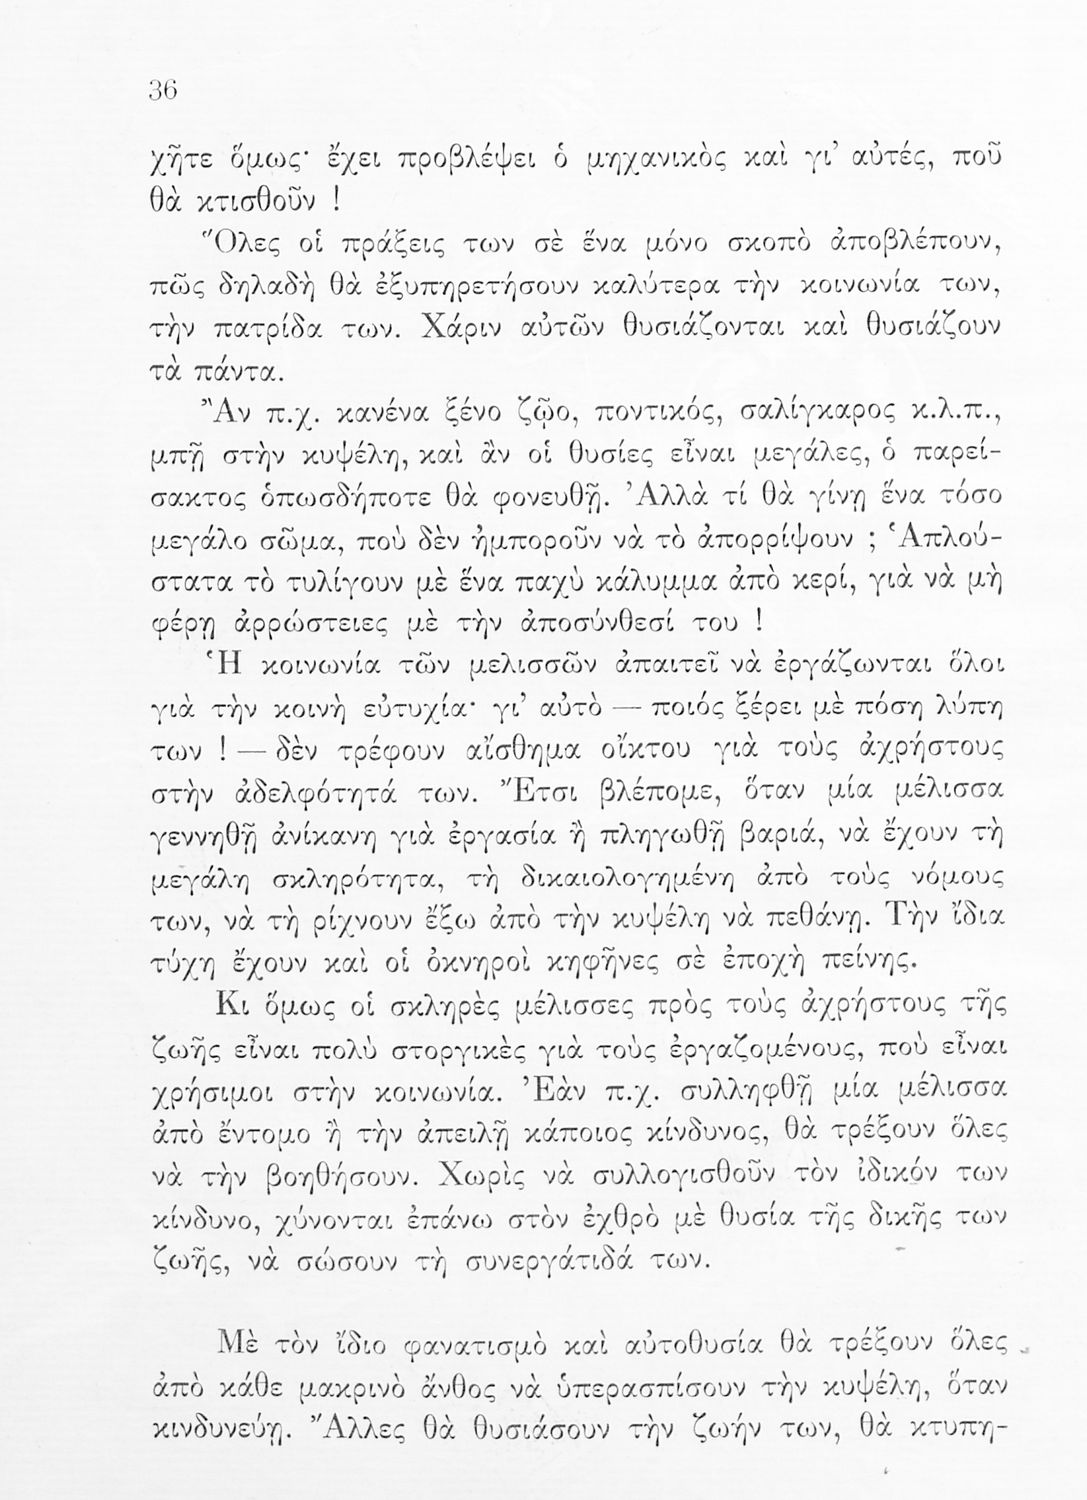 36
χῆτε ὅμως· ἔχει προβλέψει ὁ μηχανικὸς καὶ γι’ αὐτές, ποῦ
θὰ κτισθοῦν !
Ὅλες οἱ πράξεις των σὲ ἕνα μόνο σκοπὸ ἀποβλέπουν,
πῶς δηλαδὴ θὰ ἐξυπηρετήσουν καλύτερα τὴν κοινωνία των,
τὴν πατρίδα των. Χάριν αὐτῶν θυσιάζονται καὶ θυσιάζουν
τὰ πάντα.
Ἂν π.χ. κανένα ξένο ζῷο, ποντικός, σαλίγκαρος κ.λ.π.,
μπῇ στὴν κυψέλη, καὶ ἂν οἱ θυσίες εἶναι μεγάλες, ὁ παρεί-
σακτος ὁπωσδήποτε θὰ φονευθῇ. Ἀλλὰ τί θὰ γίνῃ ἕνα τόσο
μεγάλο σῶμα, ποὺ δὲν ἠμποροῦν νὰ τὸ ἀπορρίψουν ; Ἁπλού-
στατα τὸ τυλίγουν μὲ ἕνα παχὺ κάλυμμα ἀπὸ κερί, γιὰ νὰ μὴ
φέρῃ ἀρρώστειες μὲ τὴν ἀποσύνθεσί του !
Ἡ κοινωνία τῶν μελισσῶν ἀπαιτεῖ νὰ ἐργάζωνται ὅλοι
γιὰ τὴν κοινὴ εὐτυχία· γι’ αὐτὸ — ποιός ξέρει μὲ πόση λύπη
των ! — δὲν τρέφουν αἴσθημα οἴκτου γιὰ τοὺς ἀχρήστους
στὴν ἀδελφότητά των. Ἔτσι βλέπομε, ὅταν μία μέλισσα
γεννηθῇ ἀνίκανη γιὰ ἐργασία ἢ πληγωθῇ βαριά, νὰ ἔχουν τὴ
μεγάλη σκληρότητα, τὴ δικαιολογημένη ἀπὸ τοὺς νόμους
των, νὰ τὴ ρίχνουν ἔξω ἀπὸ τὴν κυψέλη νὰ πεθάνῃ. Τὴν ἴδια
τύχη ἔχουν καὶ οἱ ὀκνηροὶ κηφῆνες σὲ ἐποχὴ πείνης.
Κι ὅμως οἱ σκληρὲς μέλισσες πρὸς τοὺς ἀχρήστους τῆς
ζωῆς εἶναι πολὺ στοργικὲς γιὰ τοὺς ἐργαζομένους, ποὺ εἶναι
χρήσιμοι στὴν κοινωνία. Ἐὰν π.χ. συλληφθῇ μία μέλισσα
ἀπὸ ἔντομο ἢ τὴν ἀπειλῇ κάποιος κίνδυνος, θὰ τρέξουν ὅλες
νὰ τὴν βοηθήσουν. Χωρὶς νὰ συλλογισθοῦν τὸν ἰδικόν των
κίνδυνο, χύνονται ἐπάνω στὸν ἐχθρὸ μὲ θυσία τῆς δικῆς των
ζωῆς, νὰ σώσουν τὴ συνεργάτιδά των.
Μὲ τὸν ἴδιο φανατισμὸ καὶ αὐτοθυσία θὰ τρέξουν ὅλες
ἀπὸ κάθε μακρινὸ ἄνθος νὰ ὑπερασπίσουν τὴν κυψέλη, ὅταν
κινδυνεύῃ. Ἄλλες θὰ θυσιάσουν τὴν ζωήν των, θὰ κτυπη-